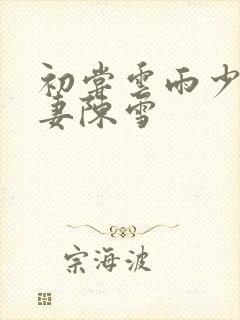 初嘗雲雨少
妻陳雪
宗海波